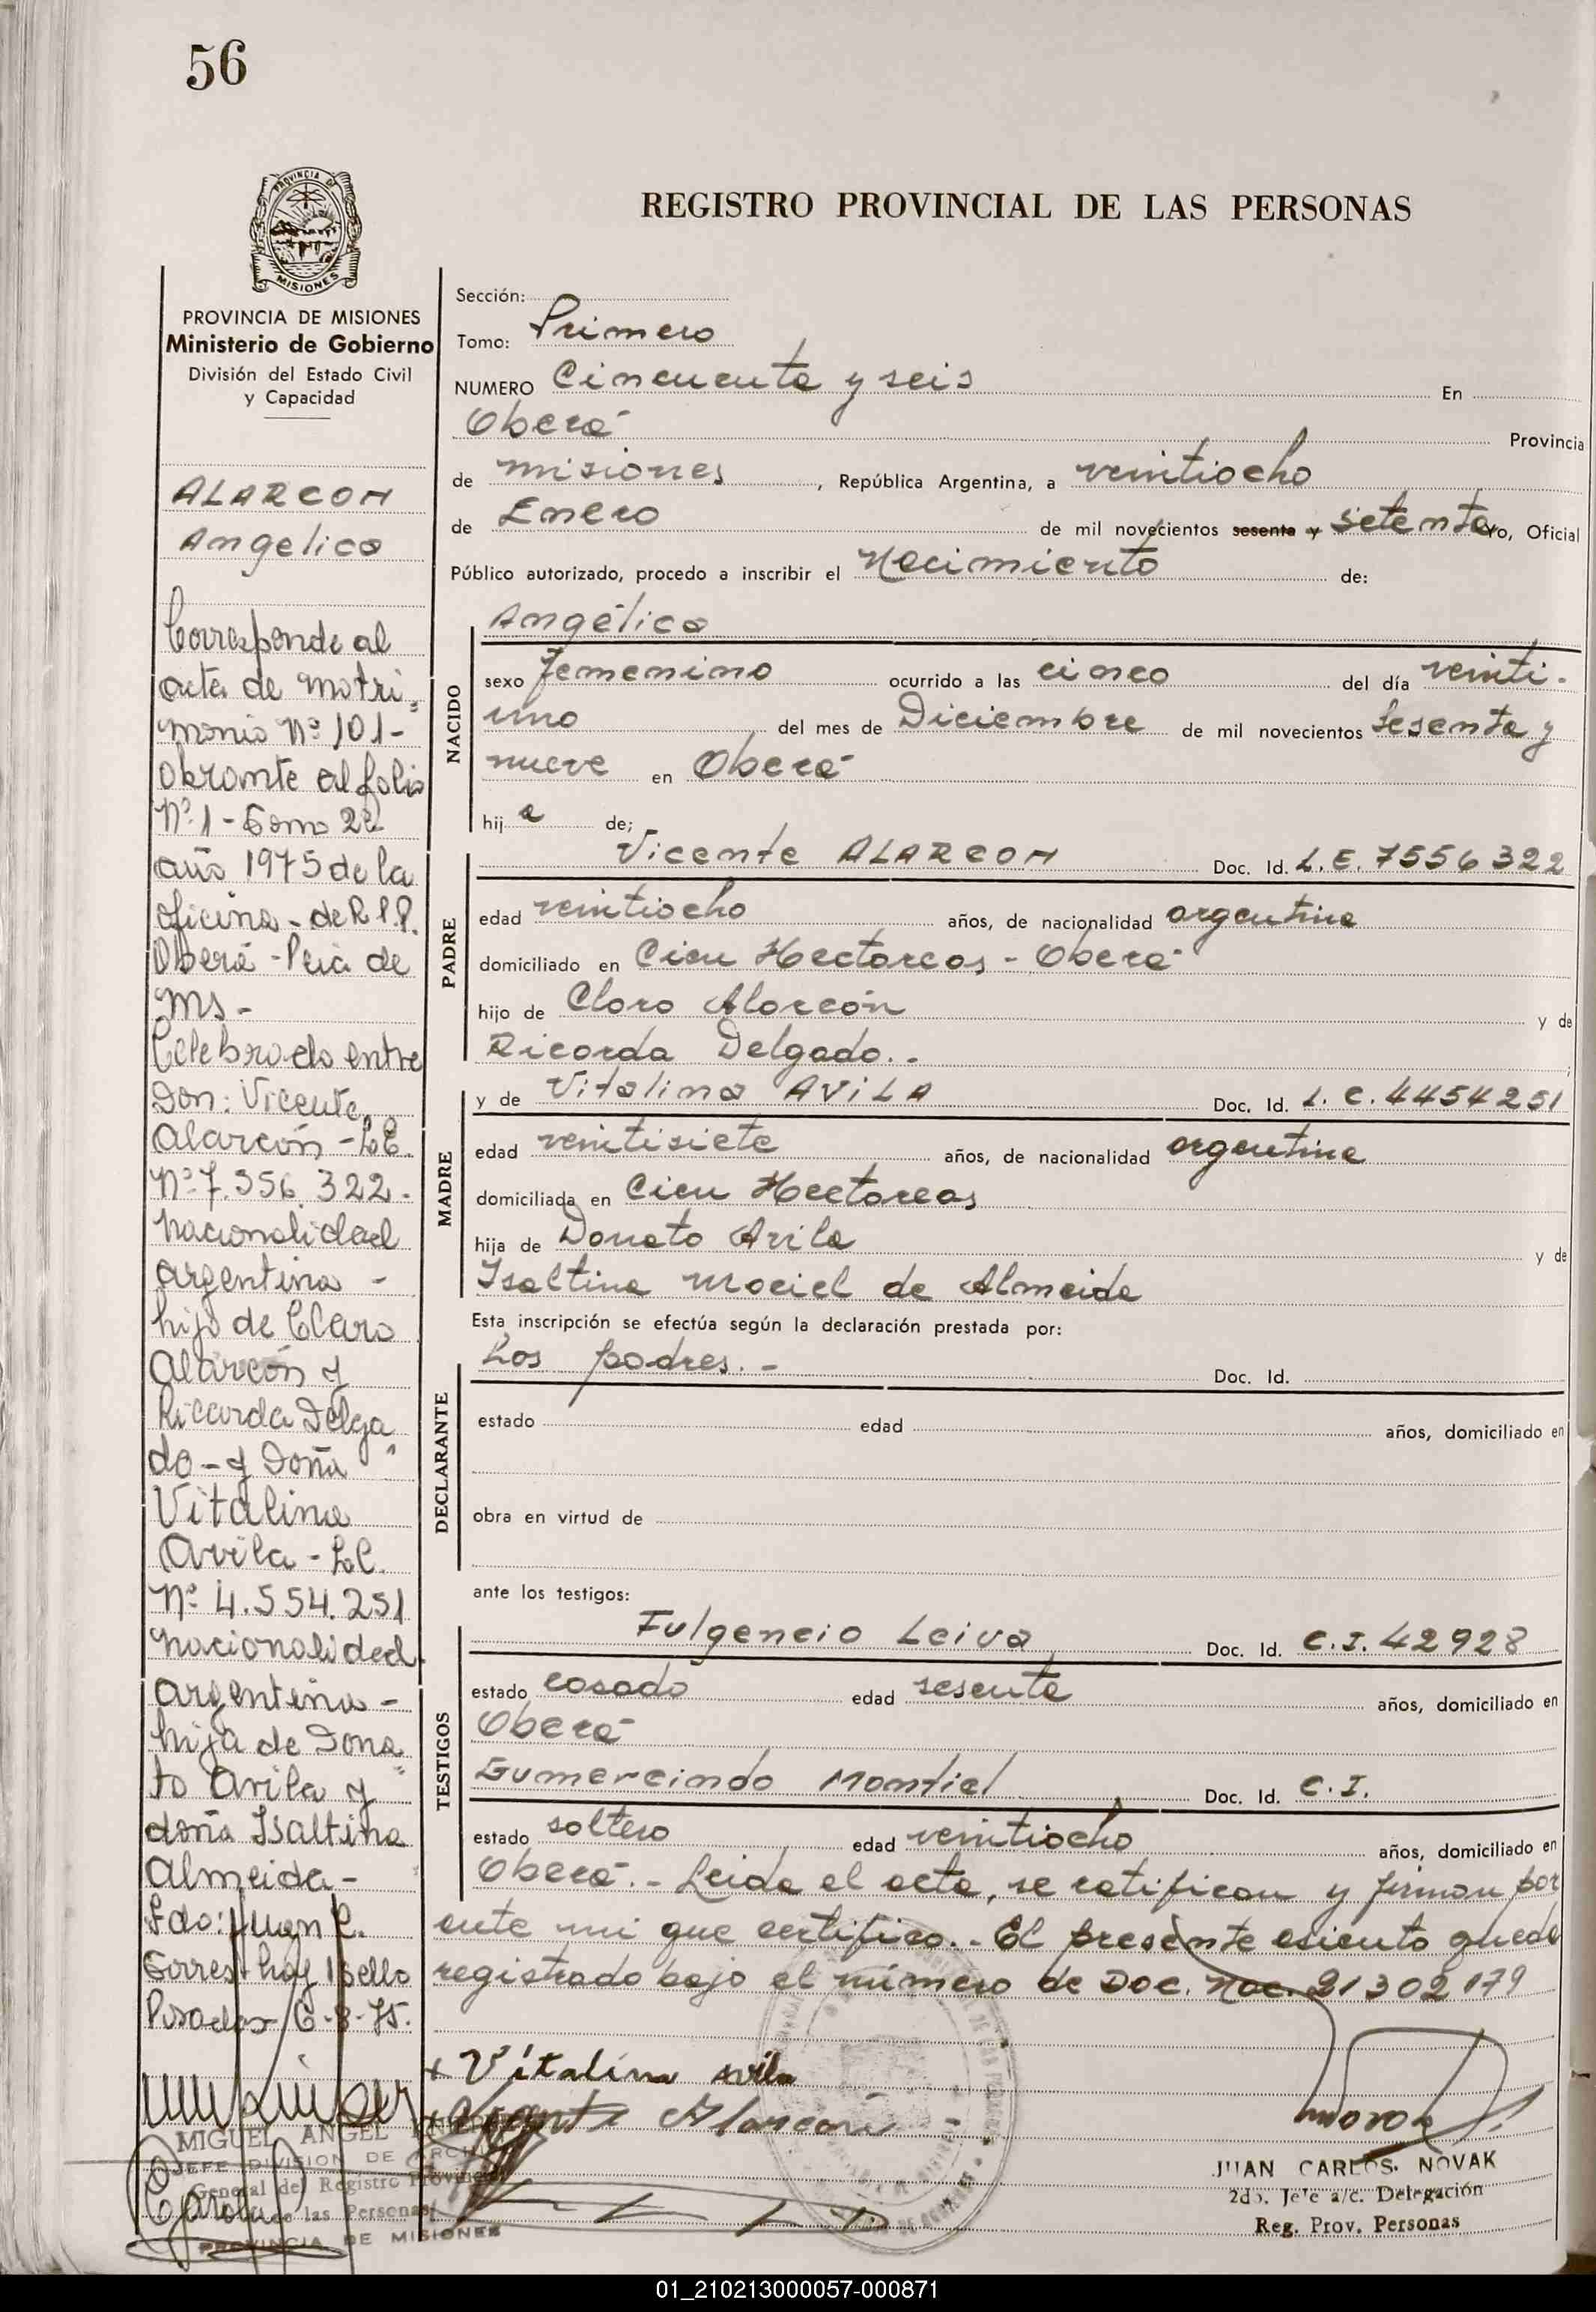 56
PROVINCIA DE
MISIONES
REGISTRO PROVINCIAL DE LAS PERSONAS
PROVINCIA DE MISIONES
Ministerio de Gobierno
División del Estado Civil
y Capacidad
ALARCON
Angelica
Corresponde al
acta de matri-
monio Nº 101-
obrante al folio
Nº 1 - Tomo 2º
año 1975 de la
oficina - de R.P.P.
Oberá - Pcia de
Ms -
Celebrado entre
Don: Vicente
Alarcón - L.E.
Nº 7.556.322.
Nacionalidad
argentina -
hijo de Claro
Alarcón y
Ricarda Delga
do - y Doña
Vitalina
Avila - L.C.
Nº 4.554.251
nacionalidad
argentina -
hija de Dona
to Avila y
doña Isaltina
Almeida -
Fdo: Juan C.
Torres - hay 1 sello
Posadas 6-8-75.
MIGUEL ANGEL
JEFE DIVISION DE
General del Registro Provincial
de las Personas
PROVINCIA DE MISIONES
Sección:
Tomo: Primero
NUMERO Cincuenta y seis En
Oberá Provincia
de misiones, República Argentina, a veintiocho
de Enero de mil novecientos sesenta y setenta Yo, Oficial
Público autorizado, procedo a inscribir el Nacimiento de:
Angélica
NACIDO
sexo femenino ocurrido a las cinco del día veinti-
uno del mes de Diciembre de mil novecientos sesenta y
nueve en Oberá
hija de;
PADRE
Vicente ALARCON Doc. Id. L.E. 7556322
edad veintiocho años, de nacionalidad argentina
domiciliado en Cien Hectareas - Oberá
hijo de Claro Alarcón y de
Ricarda Delgado.-
MADRE
y de Vitalina AVILA Doc. Id. L.C. 4454251
edad veintisiete años, de nacionalidad argentina
domiciliada en Cien Hectareas
hija de Donato Avila y de
Isaltina Maciel de Almeida
Esta inscripción se efectúa según la declaración prestada por:
DECLARANTE
Los padres.- Doc. Id.
estado edad años, domiciliado en
obra en virtud de
ante los testigos:
TESTIGOS
Fulgencio Leiva Doc. Id. C.I. 42928
estado casado edad sesenta años, domiciliado en
Oberá
Gumercindo Montiel Doc. Id. C.I.
estado soltero edad veintiocho años, domiciliado en
Oberá.- Leida el acta, se ratifican y firman por
ante mi que certifico.- El presente asiento queda
registrado bajo el número de Doc. Nac. 21302179
Vitalina Avila
Alarcón
JUAN CARLOS NOVAK
2do. Jefe a/c. Delegación
Reg. Prov. Personas
01_210213000057-000871